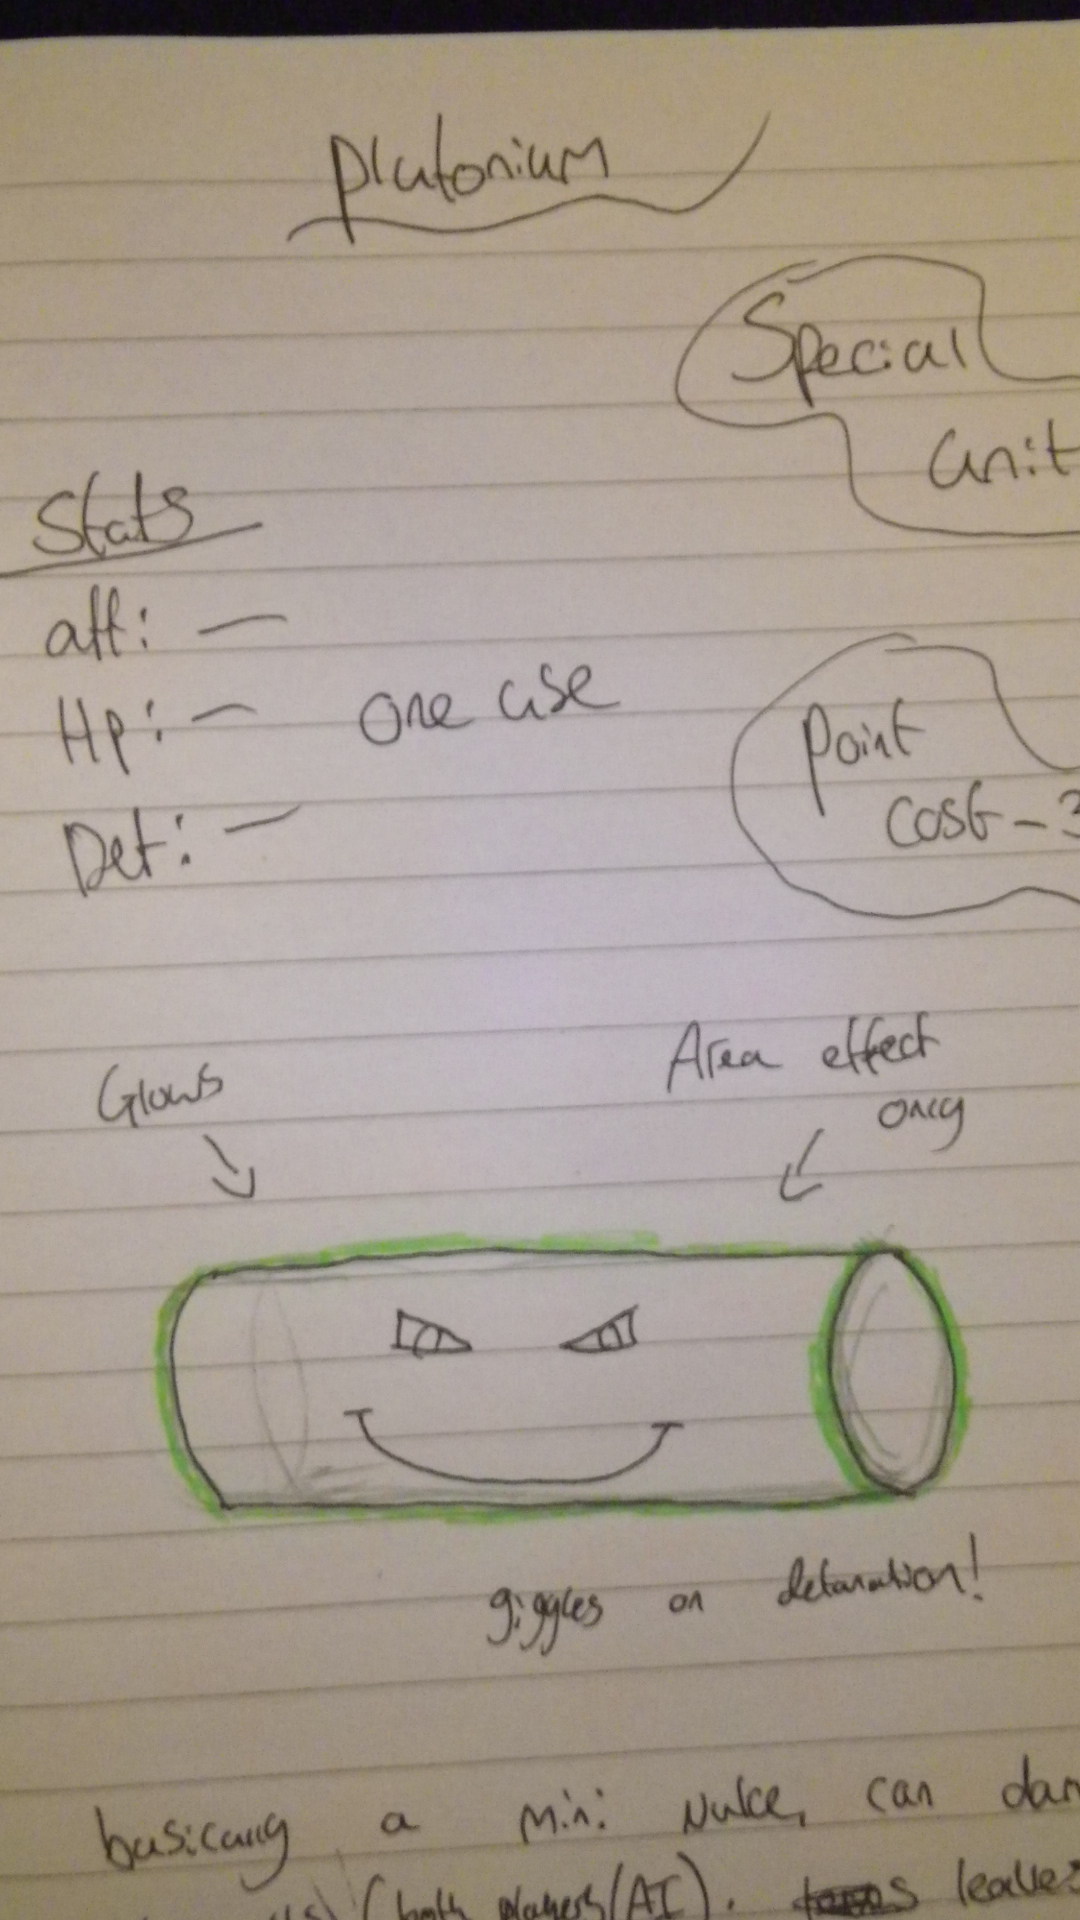 plutonium
Special
unit
Stats
att: —
Hp: — one use
Def: —
point
cost - 3
Glows
Area effect
only
giggles on detonation!
basically a mini Nuke, can
(both players/AI). leaves